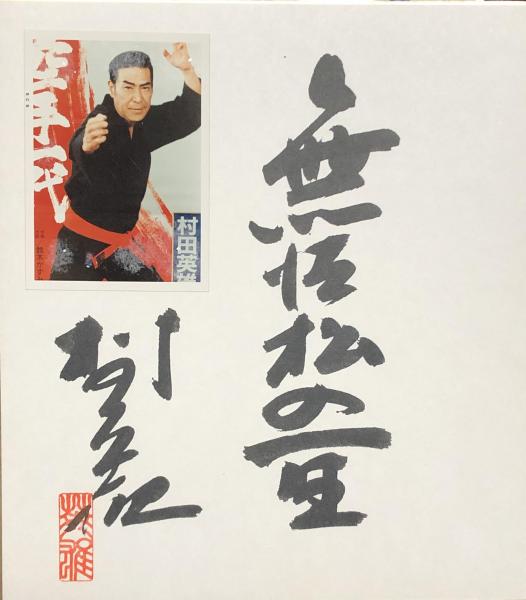 無法松の一生
空手一代
村田英雄
村田英雄
英雄